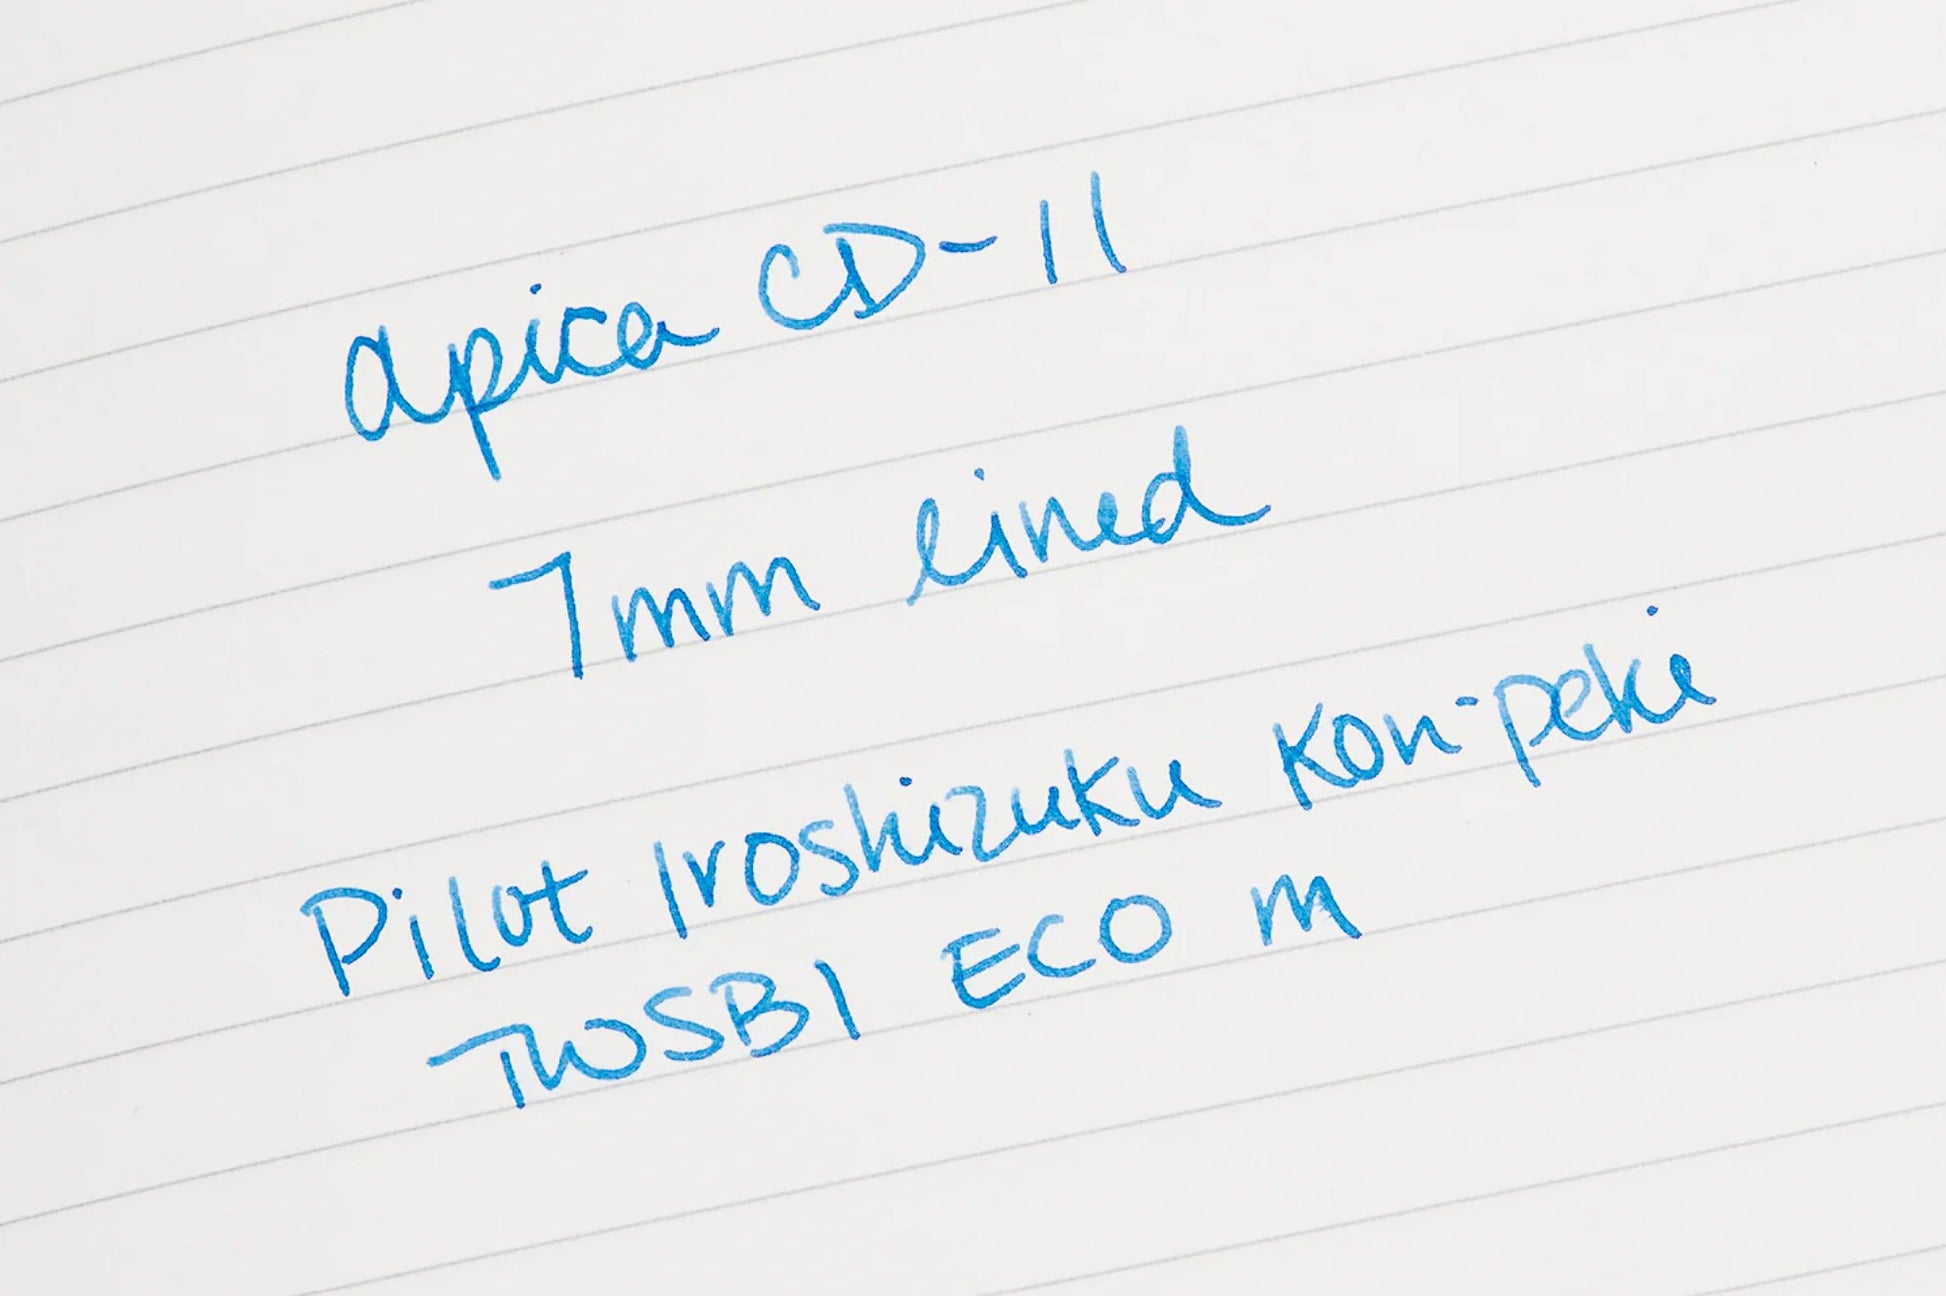 apica CD-11
7mm lined
Pilot Iroshizuku Kon-peki
TWSBI ECO m